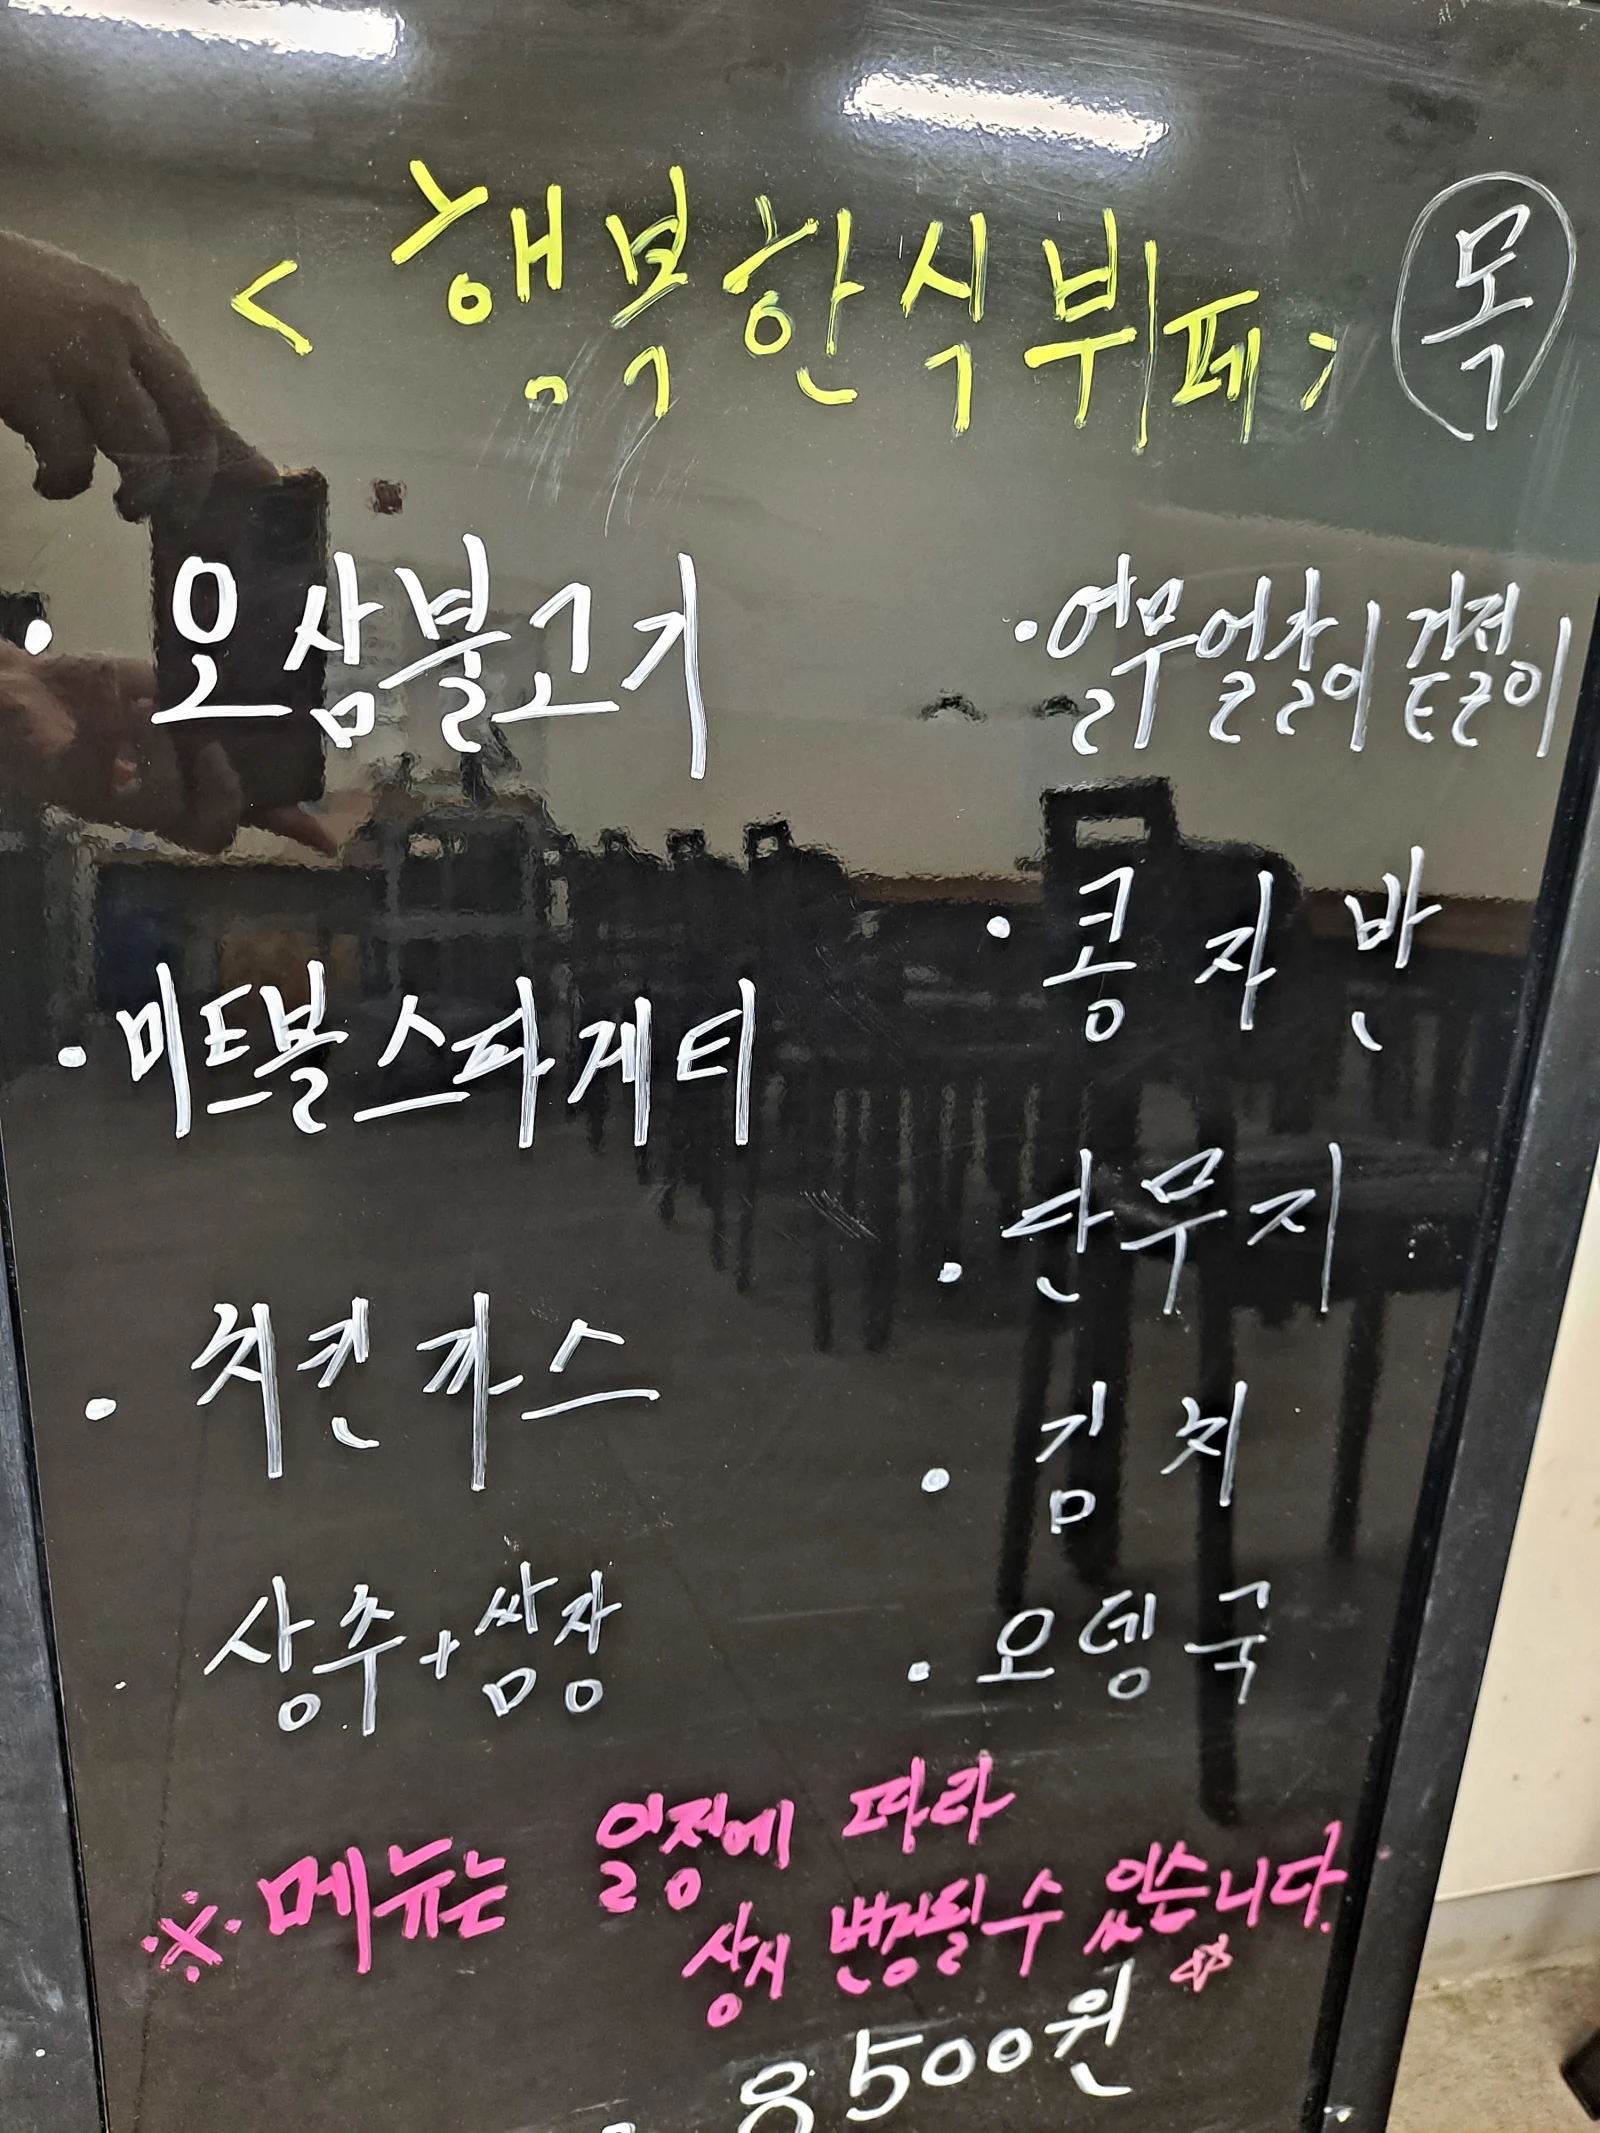 < 행복한식뷔페 >
목
· 오삼불고기
· 미트볼스파게티
· 치킨까스
· 상추+쌈장
· 열무얼갈이 겉절이
· 콩자반
· 단무지
· 김치
· 오뎅국
※ 메뉴는 일정에 따라
상시 변경될 수 있습니다.
8500원